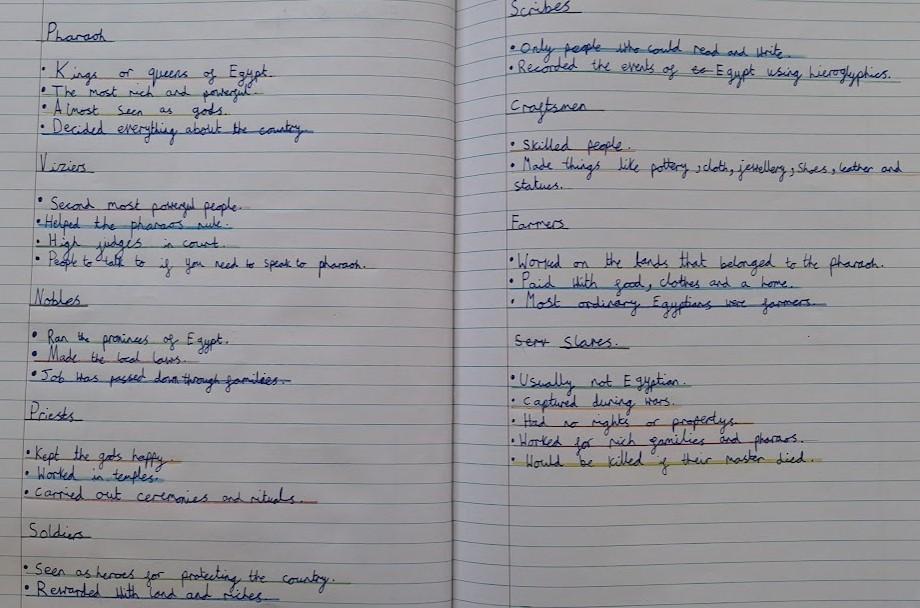 Pharaoh
• Kings or queens of Egypt.
• The most rich and powerful.
• Almost seen as gods.
• Decided everything about the country.
Viziers
• Second most powerful people.
• Helped the pharaos rule.
• High judges in court.
• People to talk to if you need to speak to pharaoh.
Nobles
• Ran the provinces of Egypt.
• Made the local laws.
• Job was passed down through families.
Priests
• Kept the gods happy.
• Worked in temples.
• Carried out ceremonies and rituals.
Soldiers
• Seen as heroes for protecting the country.
• Rewarded with land and riches.
Scribes
• Only people who could read and write.
• Recorded the events of Egypt using hieroglyphics.
Craftsmen
• Skilled people.
• Made things like pottery, cloth, jewellery, shoes, leather and
statues.
Farmers
• Worked on the lands that belonged to the pharaoh.
• Paid with food, clothes and a home.
• Most ordinary Egyptians were farmers.
Slaves.
• Usually not Egyptian.
• Captured during wars.
• Had no rights or propertys.
• Worked for rich families and pharaos.
• Would be killed if their master died.